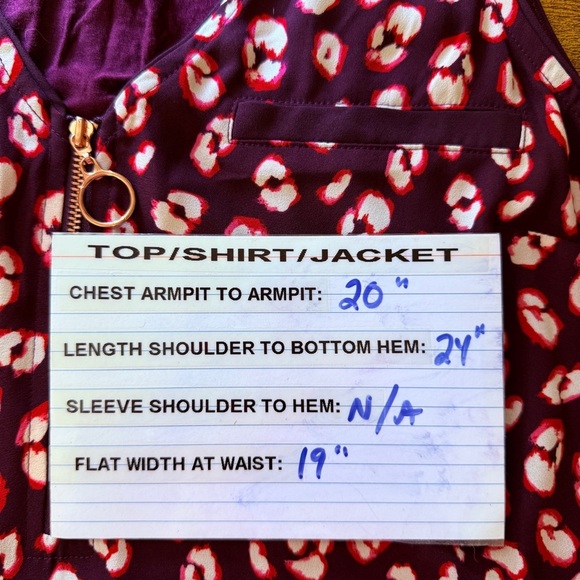 TOP/SHIRT/JACKET
CHEST ARMPIT TO ARMPIT: 20"
LENGTH SHOULDER TO BOTTOM HEM: 24"
SLEEVE SHOULDER TO HEM: N/A
FLAT WIDTH AT WAIST: 19"